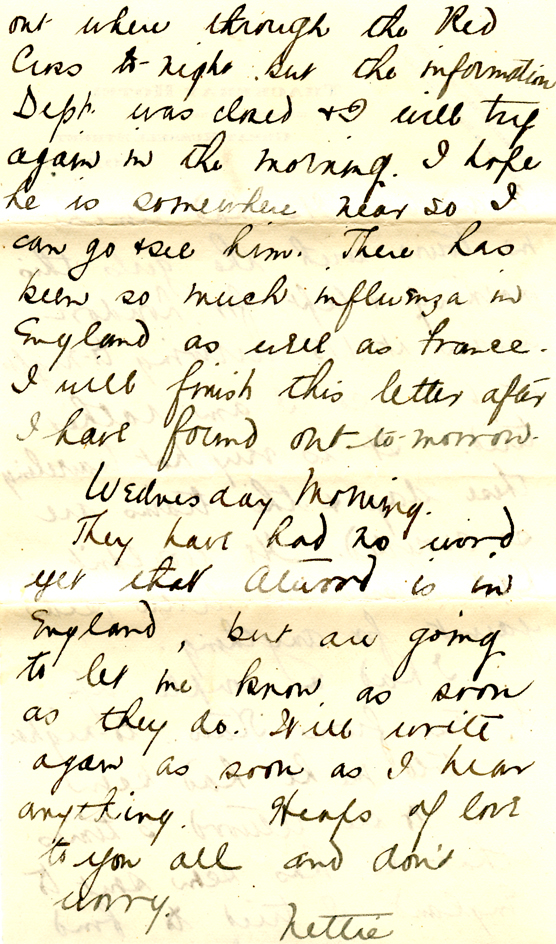 out where through the Red
Cross to-night but the information
Dept. was closed & I will try
again in the morning. I hope
he is somewhere near so I
can go & see him. There has
been so much influenza in
England as well as France.
I will finish this letter after
I have found out to-morrow.
Wednesday Morning.
They have had no word
yet that Atwood is in
England, but are going
to let me know as soon
as they do. Will write
again as soon as I hear
anything. Heaps of love
to you all and don't
worry.
Nettie